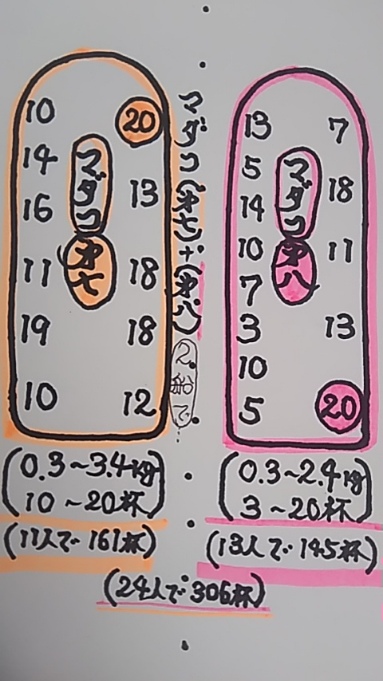 10 20
14 13
16
11 18
19 18
10 12
マダコ
第七
(0.3~3.4kg
10~20杯)
(11人で161杯)
マダコ(第七)+(第八)
2船で
13 7
5 18
14
10 11
7
3 13
10
5 20
マダコ
第八
(0.3~2.4kg
3~20杯)
(13人で145杯)
(24人で306杯)